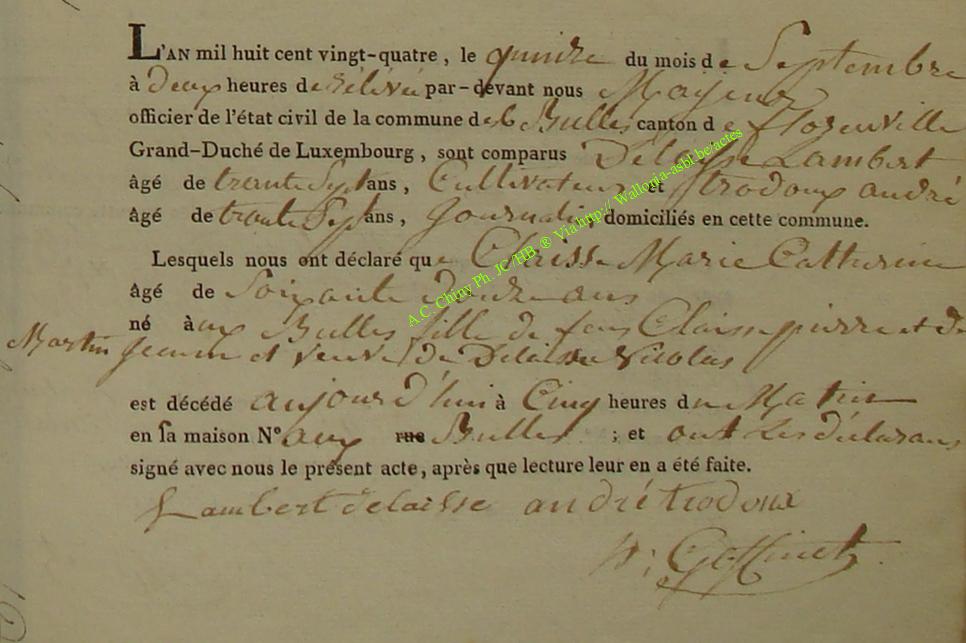 L'AN mil huit cent vingt-quatre, le quinze du mois de Septembre
à deux heures de rélévée par-devant nous Mayeur
officier de l'état civil de la commune des Bulles canton de florenville
Grand-Duché de Luxembourg, sont comparus Délaisse Lambert
âgé de trante Sept ans, Cultivateur et trodoux andré
âgé de trante Sept ans, Journali domiciliés en cette commune.
Lesquels nous ont déclaré que Claisse Marie Catherine
âgé de Soixante douze ans
né à aux Bulles fille de feus Claisse pierre et de
Martin Jeanne et veuve de Delaisse Nicolas
est décédé aujourd'hui à Cinq heures du Matin
en sa maison N° aux rue Bulles ; et ont Les déclarans
signé avec nous le présent acte, après que lecture leur en a été faite.
Lambert delaisse andré trodoux
Goffinet
A.C. Chiny Ph. JC /HB ® Via http:// Wallonia-asbl.be/actes